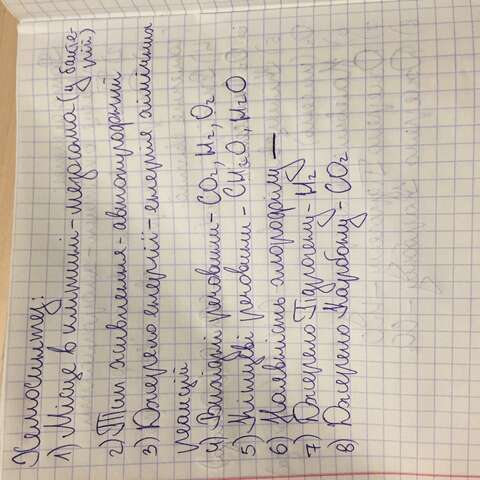 Хемосинтез:
1) Місце в клітині - мезосома (у бакте-
рій)
2) Тип живлення - автотрофний
3) Джерело енергії - енергія хімічних
реакцій
4) Вихідні речовини - CO₂, H₂, O₂
5) Кінцеві речовини - CH₂O, H₂O
6) Наявність хлорофілу —
7) Джерело Гідрогену - H₂
8) Джерело Карбону - CO₂